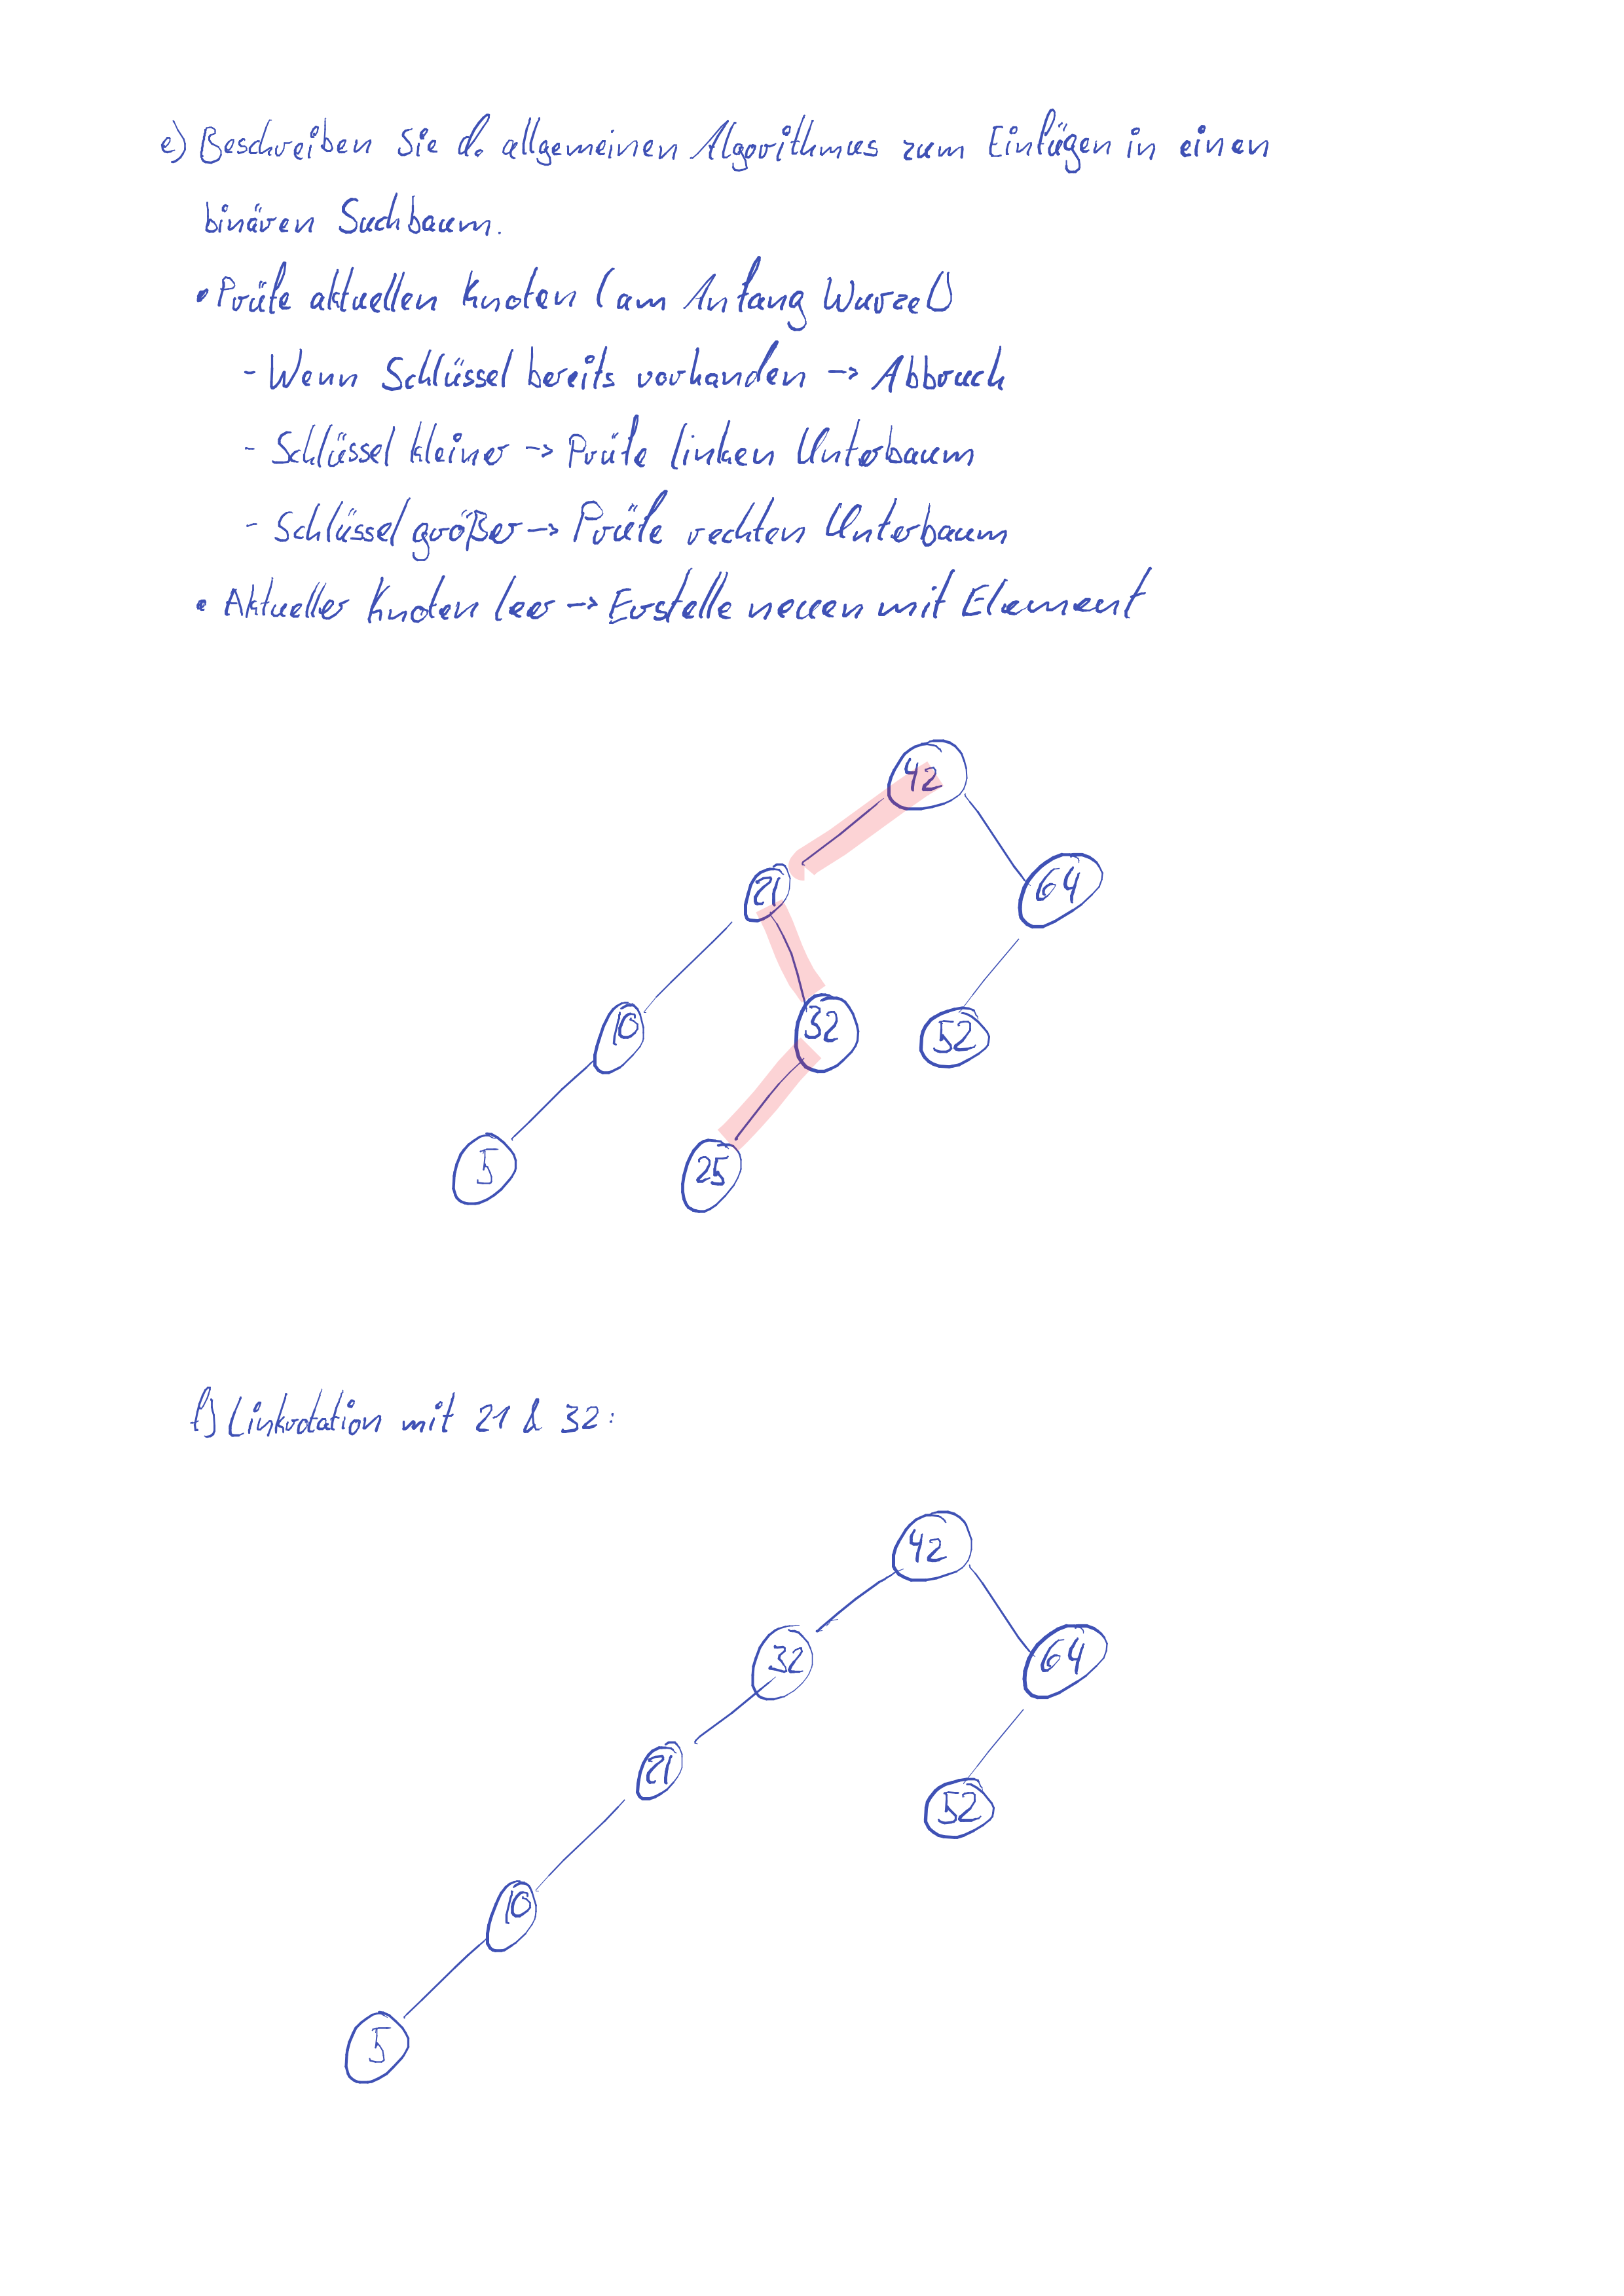 e) Beschreiben Sie d. allgemeinen Algorithmus zum Einfügen in einen
binären Suchbaum.
• Prüfe aktuellen Knoten (am Anfang Wurzel)
- Wenn Schlüssel bereits vorhanden -> Abbruch
- Schlüssel kleiner -> Prüfe linken Unterbaum
- Schlüssel größer -> Prüfe rechten Unterbaum
• Aktueller Knoten leer -> Erstelle neuen mit Element
42
21
64
10
32
52
5
25
f) Linksrotation mit 21 & 32:
42
32
64
21
52
10
5